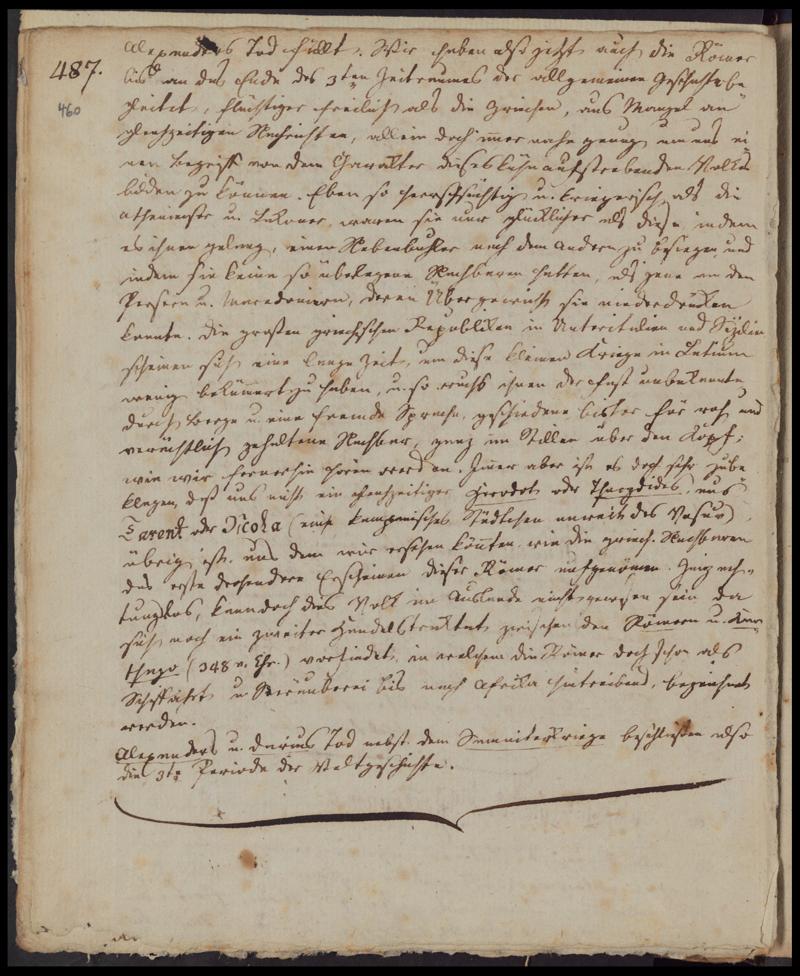 487.
460
Alexanders Tod fällt. Wir haben also jetzt auch die Römer
bis an das Ende des 3ten Zeitraumes der allgemeinen Geschichte be
gleitet, flüchtiger freilich als die Griechen, aus Mangel an
gleichzeitigen Nachrichten, allein doch imer nahe genug um uns ei
nen Begriff von dem Charakter dieses kühn aufstrebenden Volkes
bilden zu können. Eben so herrschsüchtig u. kriegerisch, als die
Athenienser u. Lakoner, waren sie nur glücklicher als diese, indem
es ihnen gelang, einen Nebenbuhler nach dem andern zu besiegen und
indem sie keine so überlegene Nachbaren hatten, als jene an den
Persern u. Macedoniern, deren Übergewicht sie niederdrücken
konnte. Die großen griechischen Republiken in Unteritalien und Sizilien
scheinen sich eine lange Zeit, um diese kleinen Kriege in Latium
wenig bekümert zu haben, u. so wuchs ihnen der fast unbekannte
durch Berge u. eine fremde Sprache, geschiedene bisher für roh und
verächtlich gehaltene Nachbar, ganz im Stillen über den Kopf;
wie wir fernerhin hören werden. Imer aber ist es doch sehr zube
klagen, daß uns nicht ein gleichzeitiger Herodot oder Thucydides, aus
Tarent oder Dicöha (eine kampanisches Städtchen unweit des Vesuv)
übrig ist, aus dem wir ersehen könten, wie die griech. Nachbaren
das erste drohendere Erscheinen dieser Römer aufgenomen. Ganz ach-
tungslos, kann doch dies Volk im Auslande nicht gewesen sein, da
sich noch ein zweiter Handelstraktat zwischen den Römern u. Kar
thago (348 v. Chr.) vorfindet, in welchem die Römer doch schon als
Schiffahrt u. Seeräuberei bis nach Afrika hintreibend, bezeichnet
werden.
Alexanders u. Darius Tod nebst dem Samniterkriege beschließen also
die 3te Periode der Weltgeschichte.